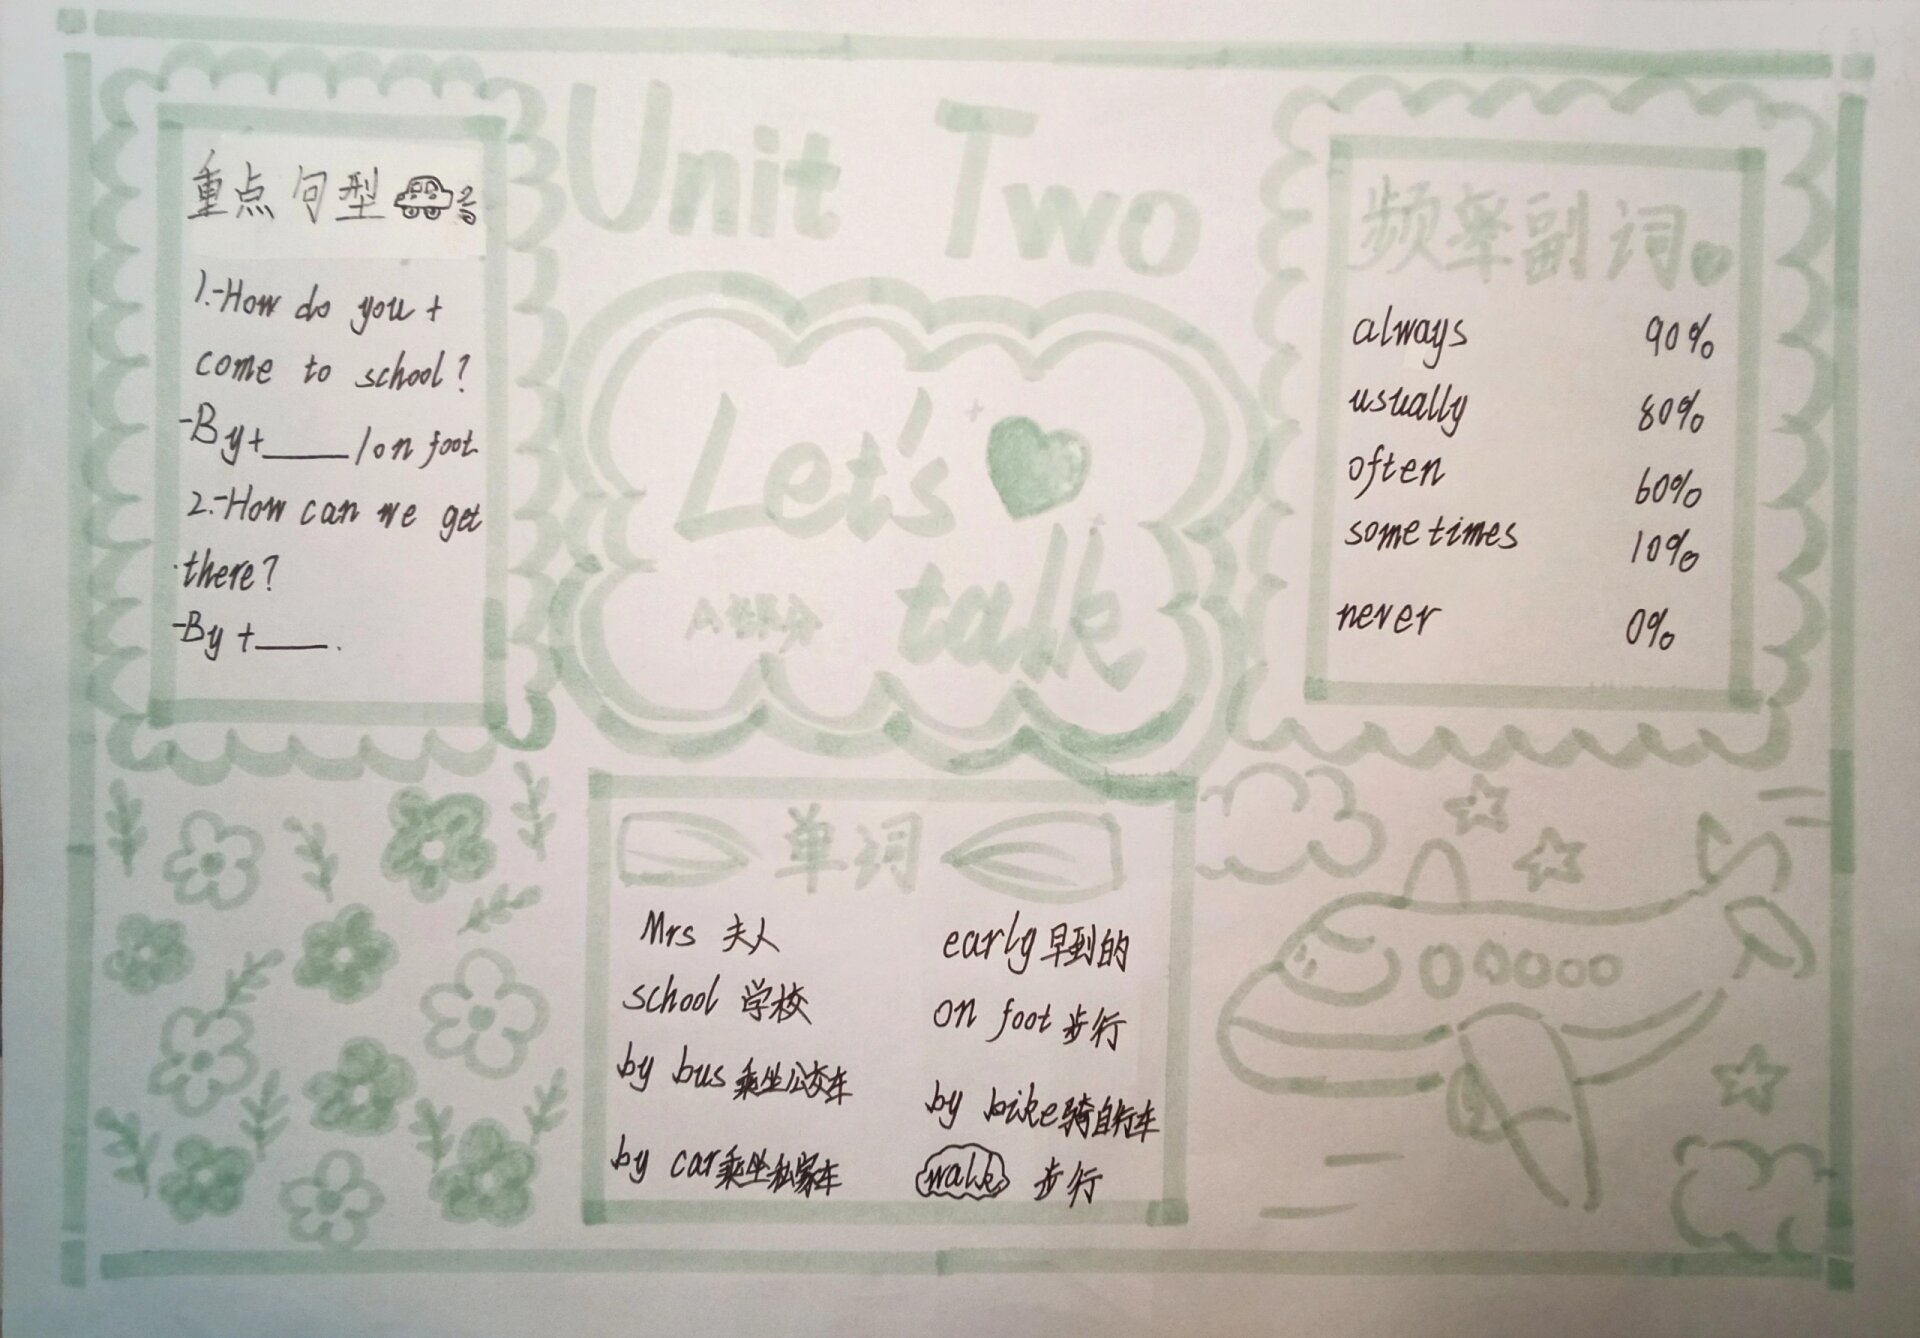 Unit Two
重点句型
1.-How do you +
come to school?
-By+____/on foot
2.-How can we get
there?
-By +____.
Let's
talk
频率副词
always 90%
usually 80%
often 60%
sometimes 10%
never 0%
单词
Mrs 夫人 early 早到的
school 学校 on foot 步行
by bus 乘坐公交车 by bike 骑自行车
by car 乘坐私家车 walk 步行